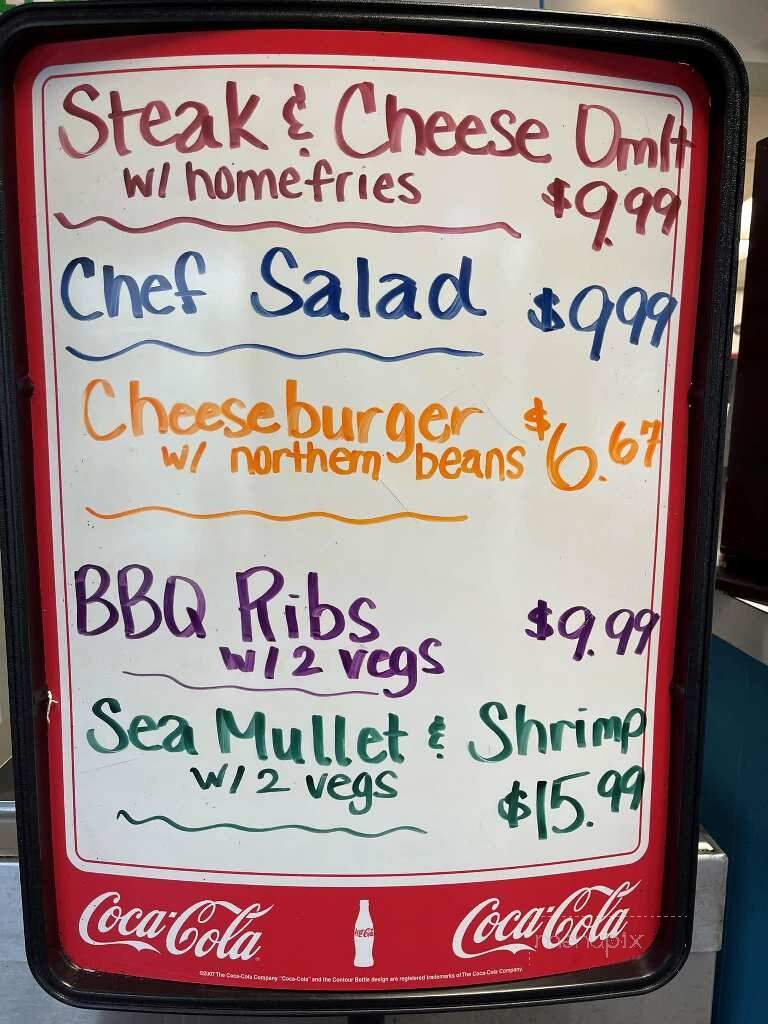 Steak & Cheese Omlt
w/ homefries $9.99
Chef Salad $9.99
Cheeseburger $6.67
w/ northern beans
BBQ Ribs $9.99
w/ 2 vegs
Sea Mullet & Shrimp
w/ 2 vegs $15.99
Coca-Cola Coca-Cola Coca-Cola
menupix
©2007 The Coca-Cola Company. "Coca-Cola" and the Contour Bottle design are registered trademarks of The Coca-Cola Company.